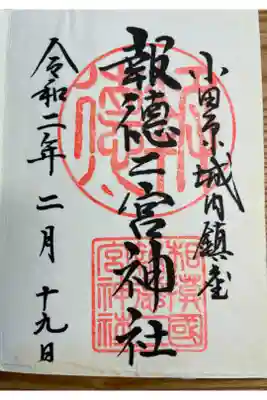 小田原城内鎮座
報徳二宮神社
令和二年二月十九日
相模國
報徳二
宮神社